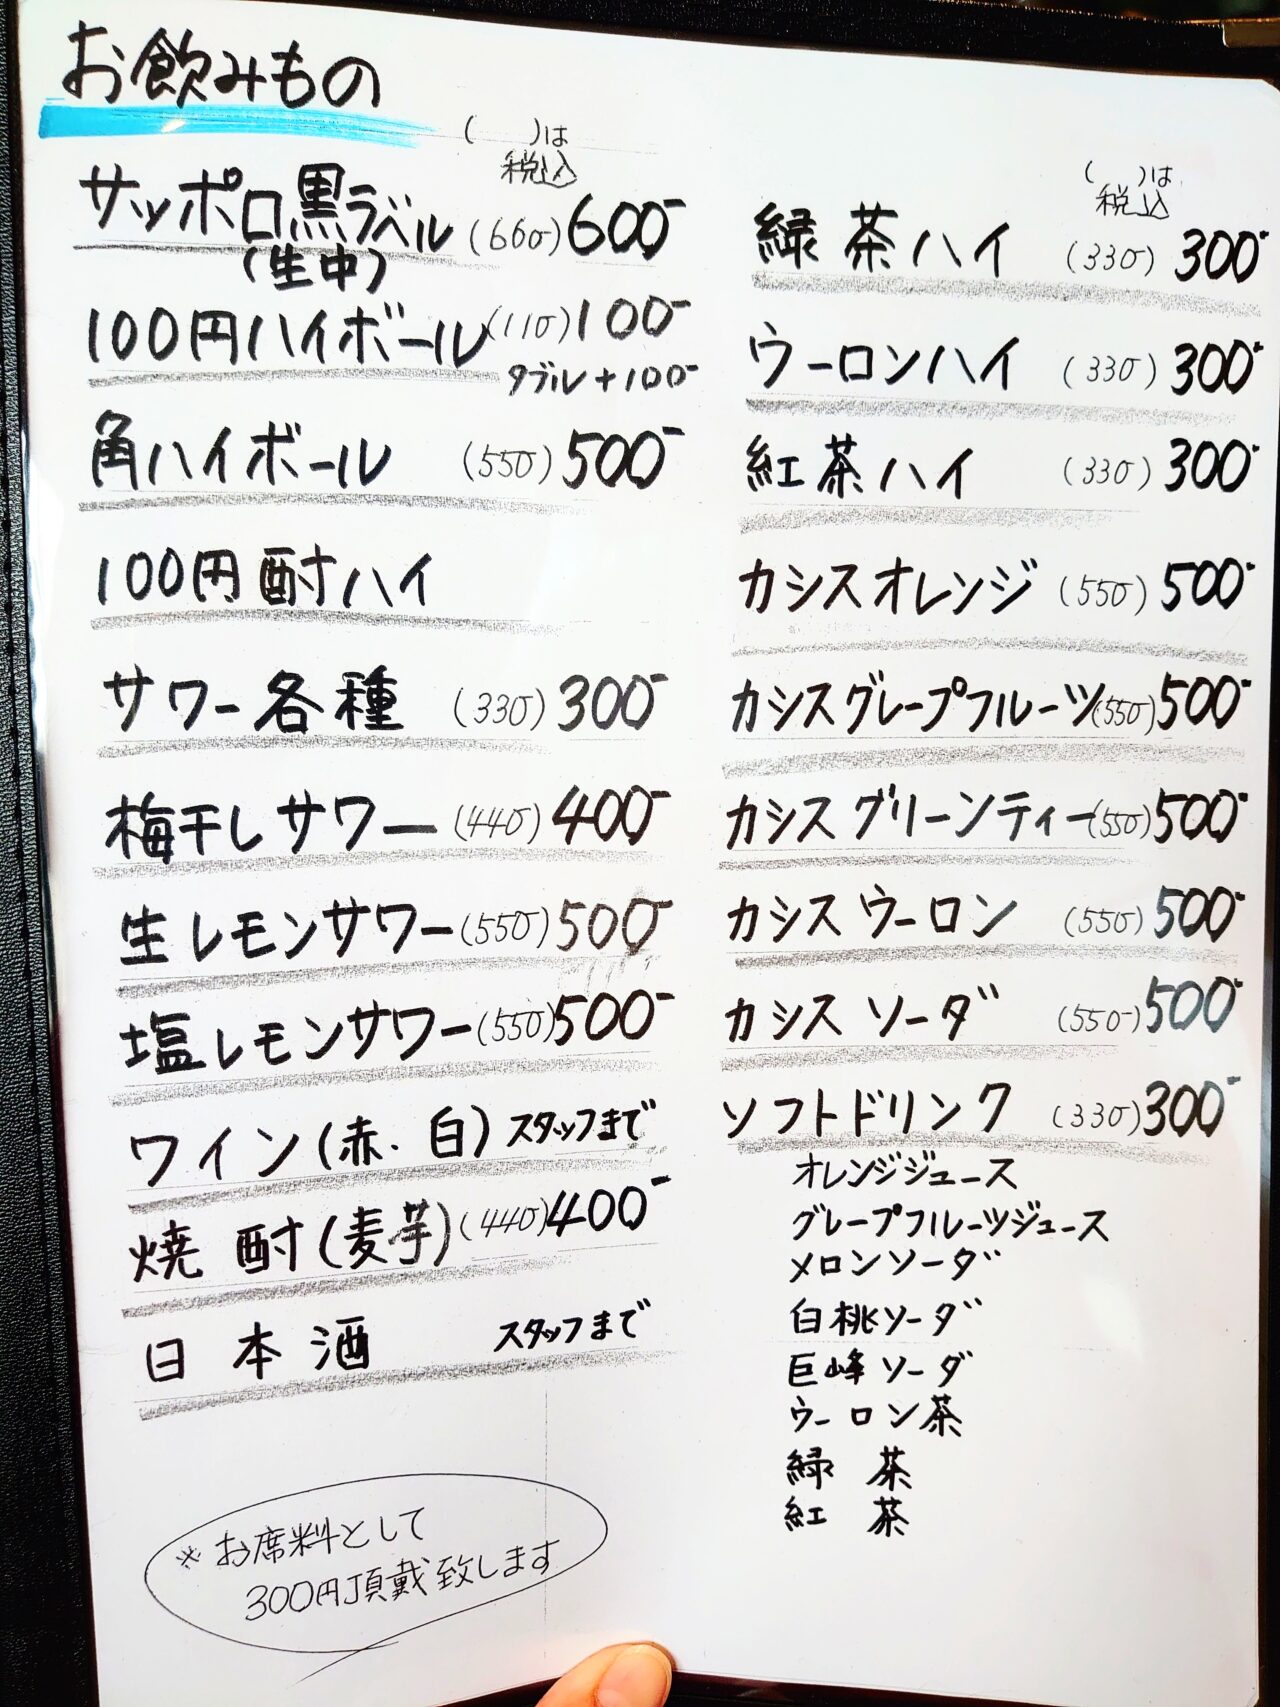 お飲みもの
( )は
税込
サッポロ黒ラベル (660) 600-
(生中)
100円ハイボール (110) 100-
ダブル+100-
角ハイボール (550) 500-
100円酎ハイ
サワー各種 (330) 300-
梅干しサワー (440) 400-
生レモンサワー (550) 500-
塩レモンサワー (550) 500-
ワイン(赤.白) スタッフまで
焼酎(麦芋) (440) 400-
日本酒 スタッフまで
※お席料として
300円頂戴致します
( )は
税込
緑茶ハイ (330) 300-
ウーロンハイ (330) 300-
紅茶ハイ (330) 300-
カシスオレンジ (550) 500-
カシスグレープフルーツ (550) 500-
カシスグリーンティー (550) 500-
カシスウーロン (550) 500-
カシスソーダ (550) 500-
ソフトドリンク (330) 300-
オレンジジュース
グレープフルーツジュース
メロンソーダ
白桃ソーダ
巨峰ソーダ
ウーロン茶
緑茶
紅茶